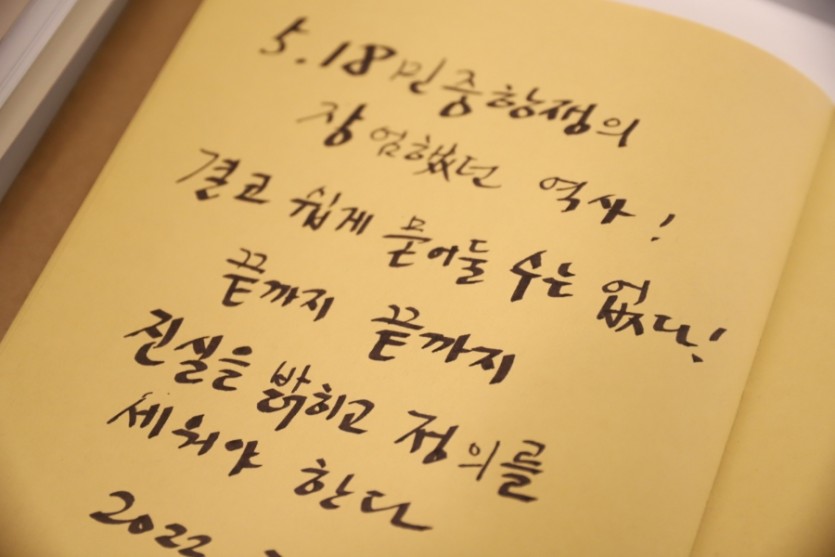 5.18민중항쟁의
장엄했던 역사!
결코 쉽게 묻어둘 수는 없다!
끝까지 끝까지
진실을 밝히고 정의를
세워야 한다
2022.